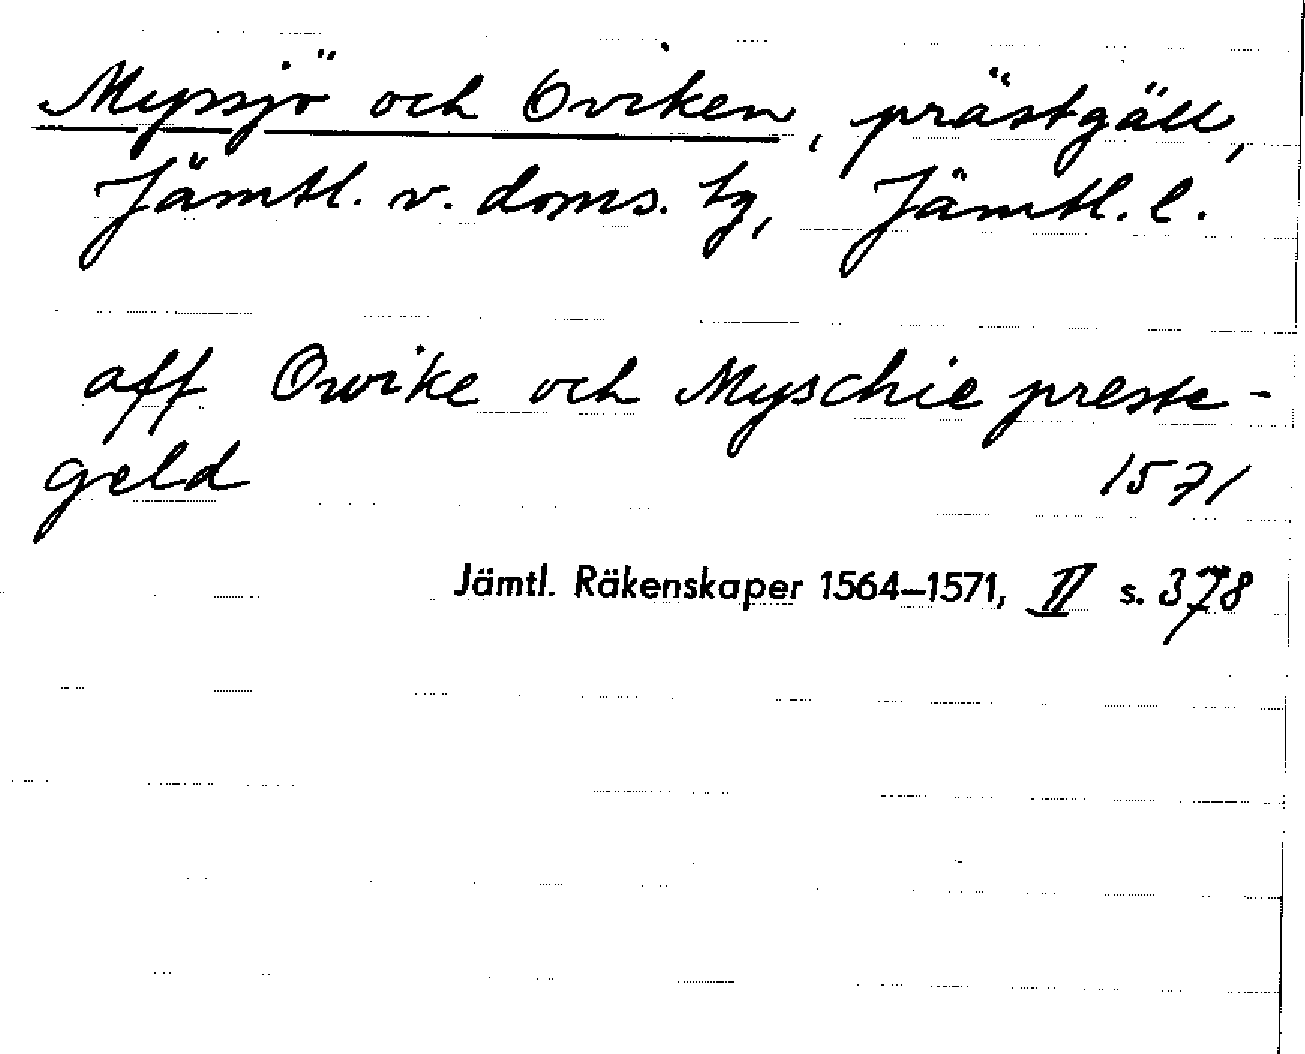 Myssjö och Oviken, prästgäll,
Jämtl. v. doms. tg, Jämtl. l.
aff Owike och Myschie preste-
geld 1571
Jämtl. Räkenskaper 1564–1571, II s. 378